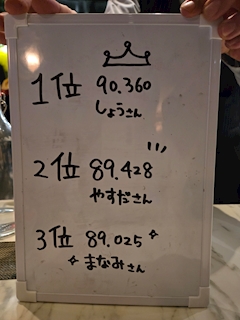 1位 90.360
しょうさん
2位 89.428
やすださん
3位 89.025
まなみさん